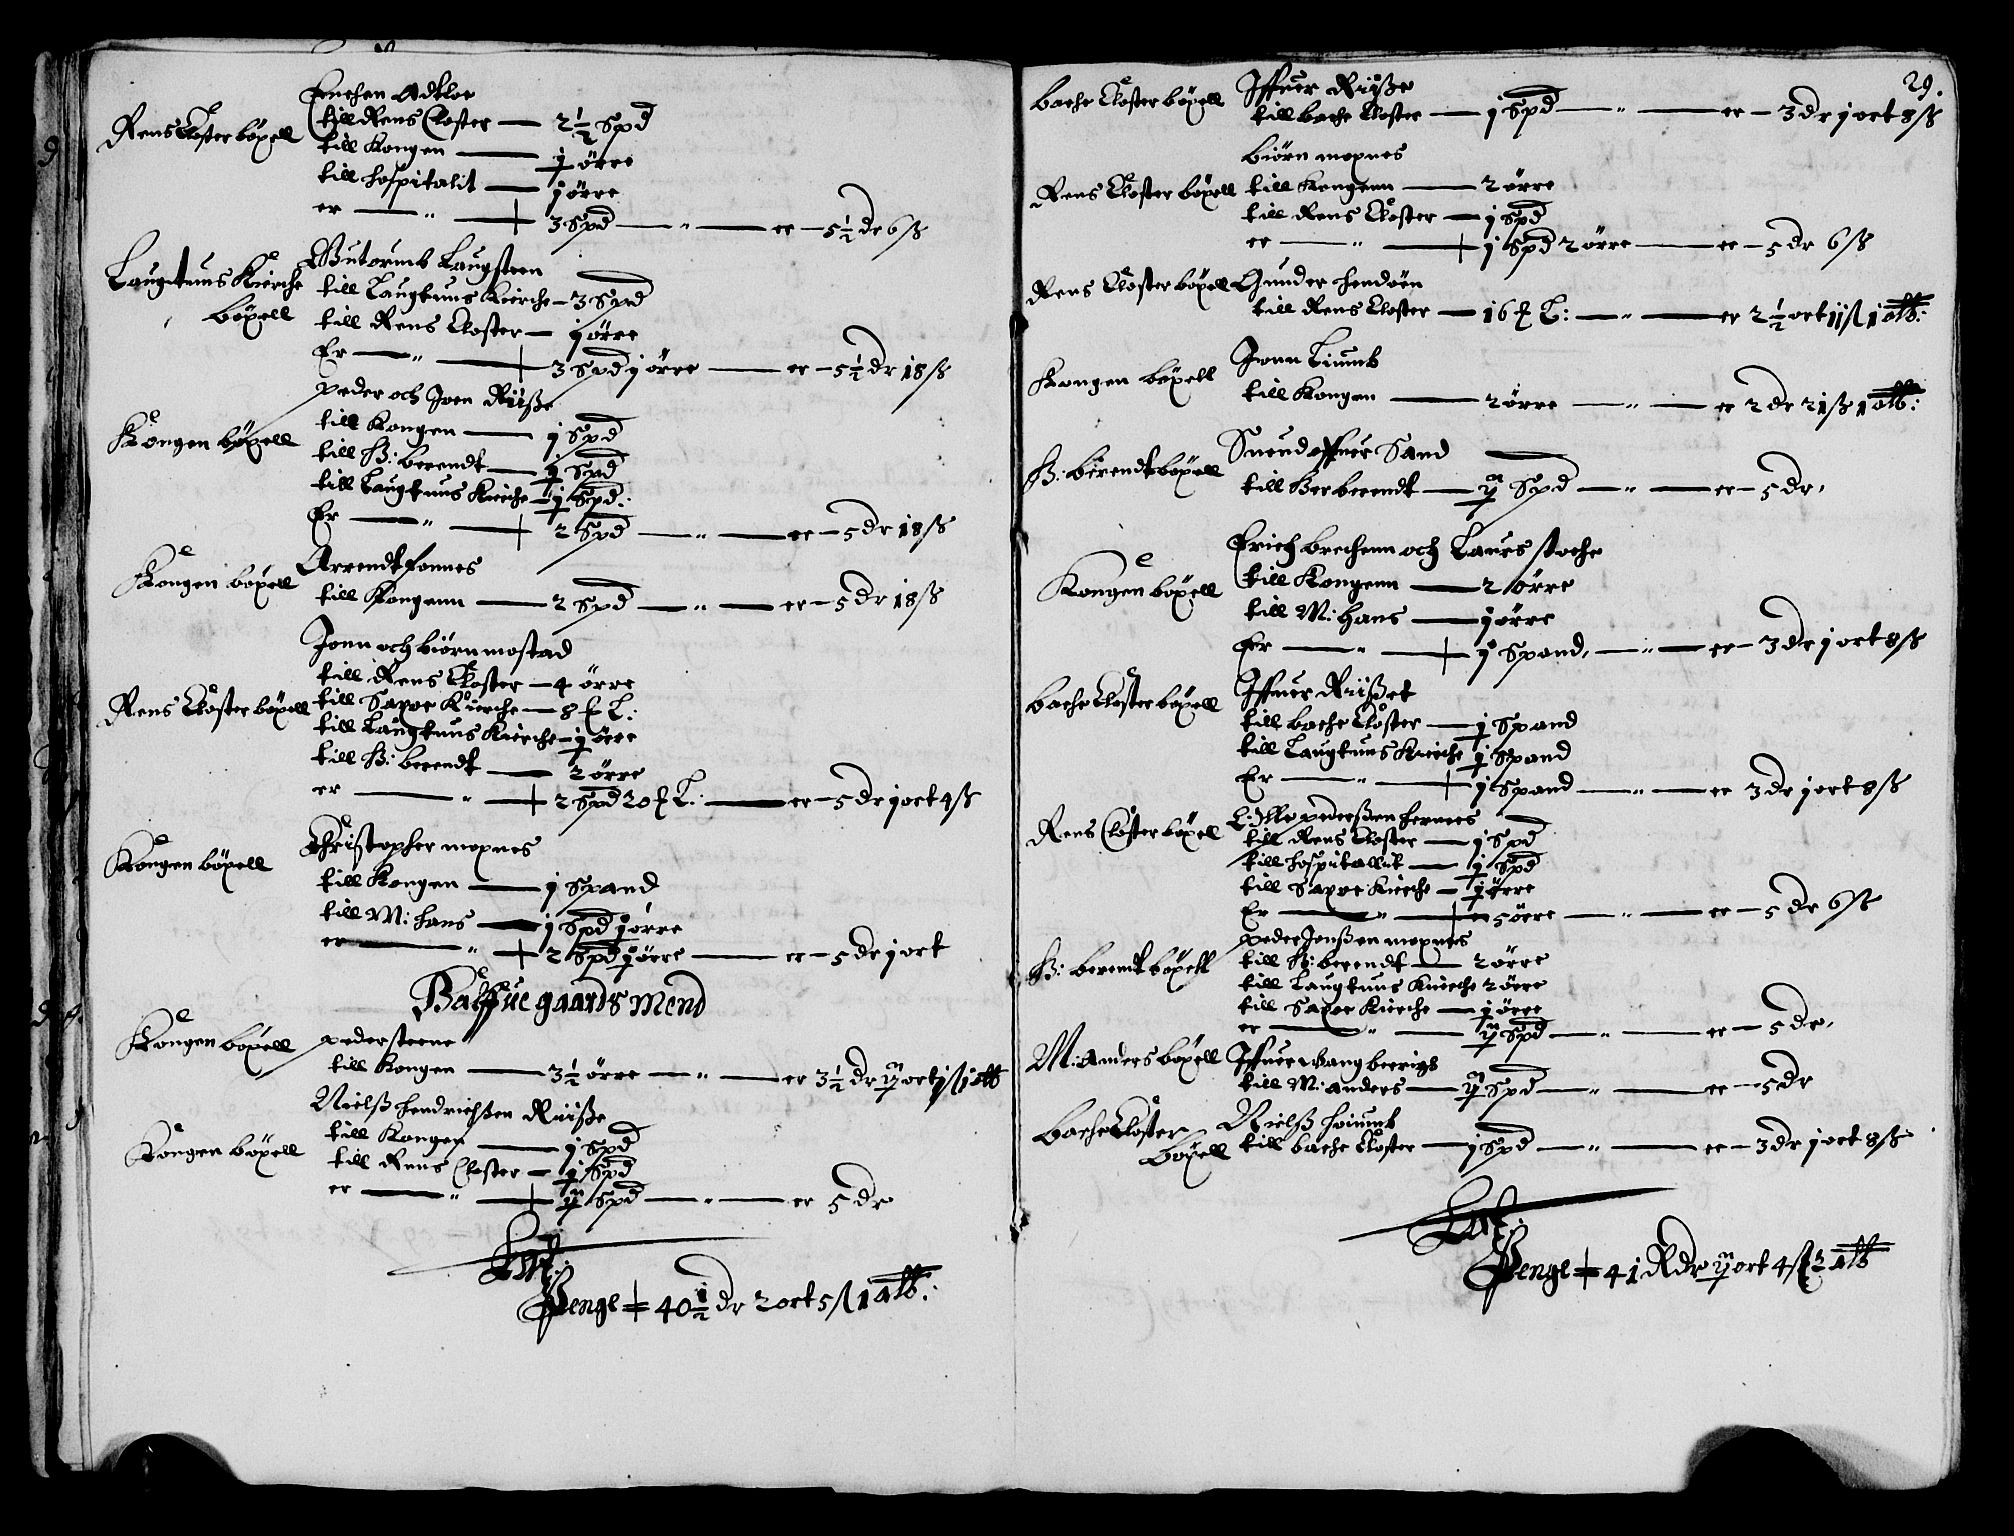 Rens Closter böxell
Enchen Adtloe
till Rens Closter — 2½ Spd
till Kongen — ½ örre
till hospitalit — j örre
er — " — 3 Spd — " — er — 5½ dr 6 ß
Laugtuns Kierche böxell
Guttormb Laugsteen
till Laugtuns Kierche — 3 Spd
till Rens Closter — j örre
Er — " — 3 Spd j örre — er — 5½ dr 18 ß
Kongen böxell
peder och Joen Riiße
till Kongen — j Spd
till H: berendt — ½ Spd
till Laugtuns Kierche — ½ Spd:
Er — " — 2 Spd — " — er — 5 dr 18 ß
Kongen böxell
Arrendt fonnes
till Kongenn — 2 Spd — " — er — 5 dr 18 ß
Rens Closter böxell
Jonn och biörn mostad
till Rens Closter — 4 örre
till Saxoe Kierche — 8 ₤ L:
till Laugtuns Kierche — ½ örre
till H: berendt — 2 örre
er — " — 2 Spd 20 ₤ L: — er — 5 dr j ort 4 ß
Kongen böxell
Christopher moxnes
till Kongen — j Spand
till M: hans — j Spd j örre
er — " — 2 Spd j örre — er — 5 dr j ort
Balffue gaards mend
Kongen böxell
peder steene
till Kongen — 3½ örre — " — er 3½ dr ½ ort j ß j alb
Kongen böxell
Nielß hendrichßen Riiße
till Kongen — j Spd
till Rens Closter — ½ Spd
er — " — ½ Spd — " — er 5 dr
Lat:
Penge 40½ dr 2 ort 5 ß 1 alb:
29.
bache Closter böxell
Iffuer Riiße
till bache Closter — j Spd — " — er — 3 dr j ort 8 ß
Rens Closter böxell
biörn moxnes
till Kongenn — 2 örre
till Rens Closter — j Spd
er — " — j Spd 2 örre — er — 5 dr 6 ß
Rens Closter böxell
Gunder hendöen
till Rens Closter — 16 ₤ L: — " — er 2½ ort 11 ß 1 alb:
Kongen böxell
Jonn Liumb
till Kongen — 2 örre — " — er 2 dr 21 ß 1 alb:
H: berendt böxell
Suend offuer Sand
till Her berendt — ½ Spd — " — er — 5 dr,
Kongen böxell
Erich brechenn och Laurs stoche
till Kongenn — 2 örre
till M: hans — j örre
Er — " — j Spand, — " — er — 3 dr j ort 8 ß
bache Closter böxell
Iffuer Riißet
till bache Closter — ½ Spand
till Laugtuns Kierche ½ Spand
Er — " — j Spand — " — er 3 dr j ort 8 ß
Rens Closter böxell
L: Olle pederßen hernes
till Rens Closter — j Spd
till hospitallit — ½ Spd
till Saxoe Kierche — ½ örre
Er — " — 5 örre — " — er — 5 dr 6 ß
H: berendt böxell
peder Jonßen moxnes
till H: berendt — 2 örre
till Laugtuns Kierche 2 örre
till Saxoe Kierche — ½ örre
er — " — ½ Spd — " — er — 5 dr,
M: anders böxell
Iffuer Wang beerigs
till M: anders — ½ Spd — " — er — 5 dr
bache Closter böxell
Nielß hiumb
till bache Closter — j Spd — " — er — 3 dr j ort 8 ß
Lat:
Penge 41 Rdr ½ ort 4 ß 2 alb